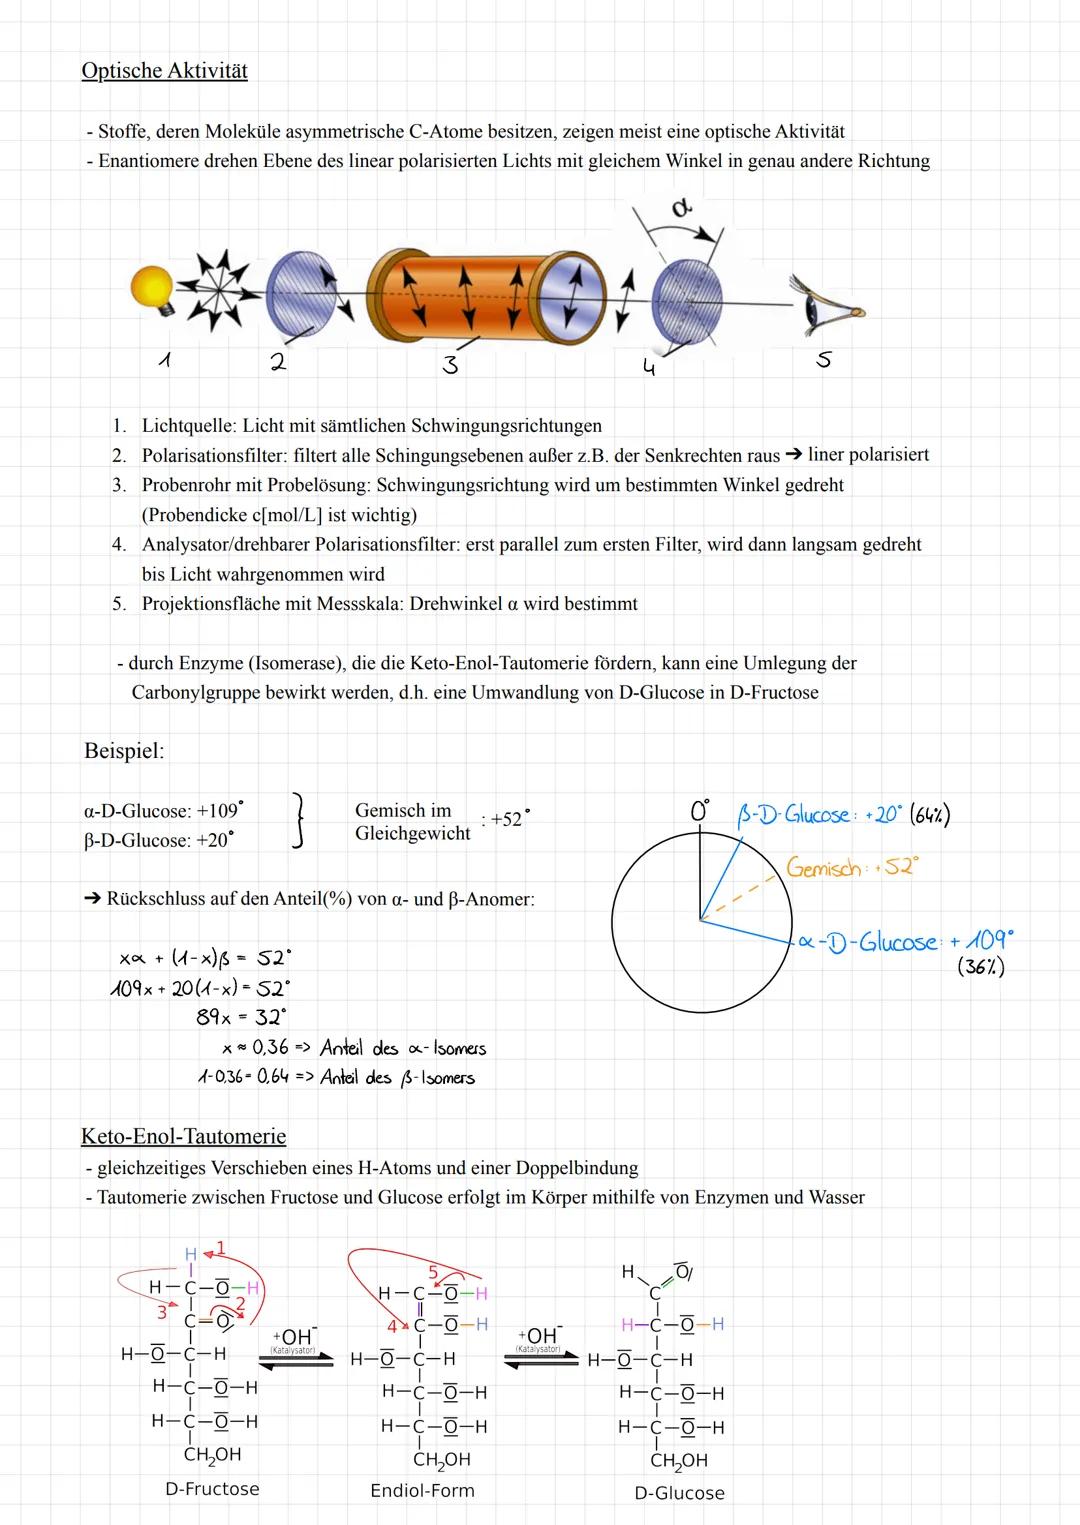 Optische Aktivität
- Stoffe, deren Moleküle asymmetrische C-Atome besitzen, zeigen meist eine optische Aktivität
- Enantiomere drehen Ebene des linear polarisierten Lichts mit gleichem Winkel in genau andere Richtung
α
1 2 3 4 5
1. Lichtquelle: Licht mit sämtlichen Schwingungsrichtungen
2. Polarisationsfilter: filtert alle Schingungsebenen außer z.B. der Senkrechten raus → liner polarisiert
3. Probenrohr mit Probelösung: Schwingungsrichtung wird um bestimmten Winkel gedreht
(Probendicke c[mol/L] ist wichtig)
4. Analysator/drehbarer Polarisationsfilter: erst parallel zum ersten Filter, wird dann langsam gedreht
bis Licht wahrgenommen wird
5. Projektionsfläche mit Messskala: Drehwinkel α wird bestimmt
- durch Enzyme (Isomerase), die die Keto-Enol-Tautomerie fördern, kann eine Umlegung der
Carbonylgruppe bewirkt werden, d.h. eine Umwandlung von D-Glucose in D-Fructose
Beispiel:
α-D-Glucose: +109°
β-D-Glucose: +20°
}
Gemisch im
Gleichgewicht
: +52°
0°
β-D-Glucose: +20° (64%)
Gemisch: +52°
α-D-Glucose: +109°
(36%)
→ Rückschluss auf den Anteil(%) von α- und β-Anomer:
xα + (1-x)β = 52°
109x + 20(1-x) = 52°
89x = 32°
x ≈ 0,36 => Anteil des α-Isomers
1-0,36 = 0,64 => Anteil des β-Isomers
Keto-Enol-Tautomerie
- gleichzeitiges Verschieben eines H-Atoms und einer Doppelbindung
- Tautomerie zwischen Fructose und Glucose erfolgt im Körper mithilfe von Enzymen und Wasser
H 1
H-C-O-H
3 2
C=O
H-O-C-H
H-C-O-H
H-C-O-H
CH₂OH
D-Fructose
+OH⁻
(Katalysator)
5
H-C-O-H
4 C-O-H
H-O-C-H
H-C-O-H
H-C-O-H
CH₂OH
Endiol-Form
+OH⁻
(Katalysator)
H O
C
H-C-O-H
H-O-C-H
H-C-O-H
H-C-O-H
CH₂OH
D-Glucose